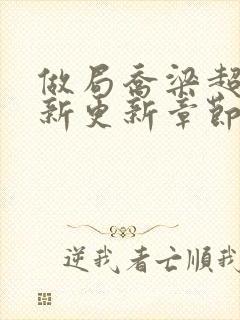 做局乔梁超
新更新章节
逆我者亡顺我